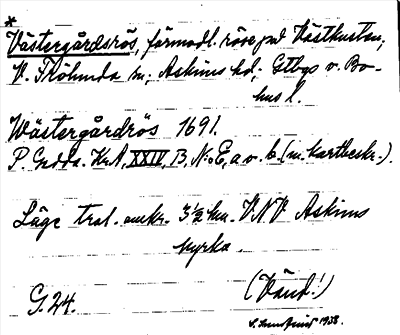 *
Västergårdsrös, förmodl. röse på Västkusten,
V. Frölunda sn, Askims hd, Gtbgs o. Bo-
hus l.
Wästergårdrös 1691.
P. Gedda. KrA, XXIV, B, N:o E, a o. b. (m. kartbeskr.).
Läge trol. omkr. 3½ km. VNV Askims
kyrka.
G. 24. (Vänd!)
1938.